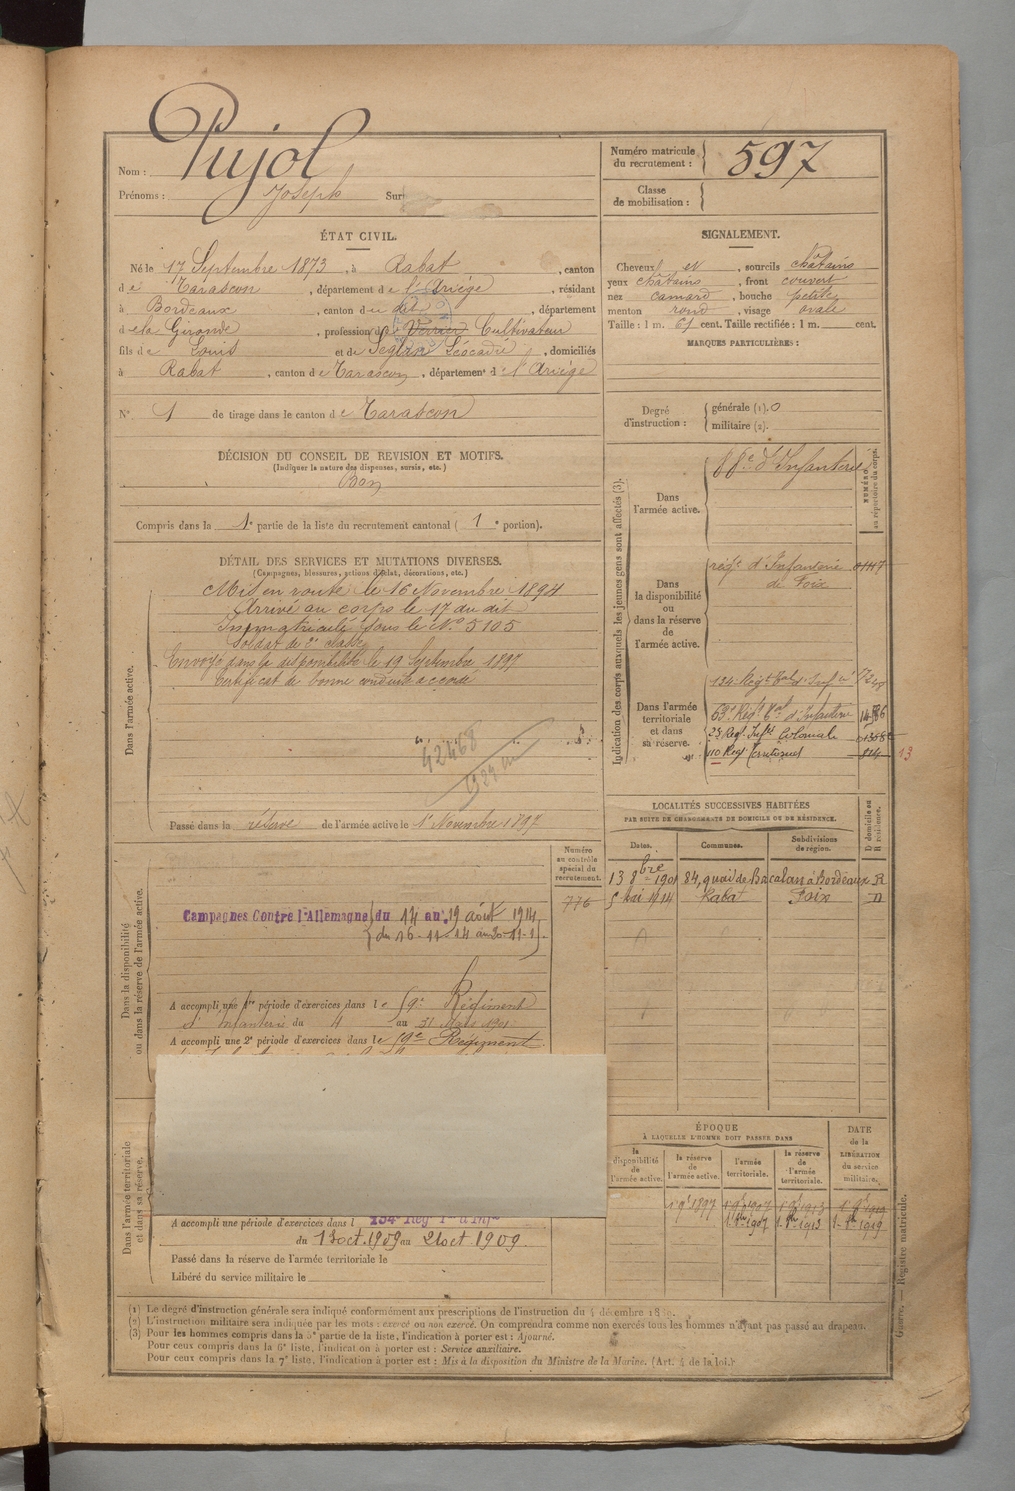 Nom : Pujol
Prénoms : Joseph Sur
Numéro matricule du recrutement : 597
Classe de mobilisation :
ÉTAT CIVIL.
Né le 17 Septembre 1873, à Rabat, canton
de Tarascon, département de l'Ariège, résidant
à Bordeaux, canton du dit, département
de la Gironde, profession de Verrier Cultivateur
fils de Louis et de Séglan Léocadie, domiciliés
à Rabat, canton de Tarascon, département de l'Ariège
N° 1 de tirage dans le canton de Tarascon
SIGNALEMENT.
Cheveux et, sourcils châtains
yeux châtains, front couvert
nez camard, bouche petite
menton rond, visage ovale
Taille : 1 m. 61 cent. Taille rectifiée : 1 m. cent.
MARQUES PARTICULIÈRES :
Degré d'instruction : générale (1). 0
militaire (2).
DÉCISION DU CONSEIL DE REVISION ET MOTIFS.
(Indiquer la nature des dispenses, sursis, etc.)
Bon
Compris dans la 1e partie de la liste du recrutement cantonal ( 1e portion).
DÉTAIL DES SERVICES ET MUTATIONS DIVERSES.
(Campagnes, blessures, actions d'éclat, décorations, etc.)
Dans l'armée active.
Mis en route le 16 Novembre 1894
Arrivé au corps le 17 du dit
Immatriculé sous le N° 5105
Soldat de 2e classe
Envoyé dans la disponibilité le 19 Septembre 1897
Certificat de bonne conduite accordé
42468
Passé dans la réserve de l'armée active le 1er Novembre 1897
Indication des corps auxquels les jeunes gens sont affectés (3).
NUMÉRO au répertoire du corps.
Dans l'armée active.
d'Infanterie
Dans la disponibilité ou dans la réserve de l'armée active.
régt d'Infanterie 01117
de Foix
Dans l'armée territoriale et dans sa réserve.
134 Régt
63e Régt d'Infanterie
23 Régt Inft Coloniale
110 Régt Territorial 824
13
LOCALITÉS SUCCESSIVES HABITÉES
PAR SUITE DE CHANGEMENTS DE DOMICILE OU DE RÉSIDENCE.
Dates. Communes. Subdivisions de région. D domicile ou R résidence.
13 8bre 1901 84, quai de Bacalan à Bordeaux R
5 Mai 1914 Rabat Foix D
Numéro au contrôle spécial du recrutement.
776
Dans la disponibilité ou dans la réserve de l'armée active.
Campagnes Contre l'Allemagne du 14 au 19 août 1914
du 16-11-14 au
A accompli une 1re période d'exercices dans le 59e Régiment
d'Infanterie du 4 au 31 Mars 1901
A accompli une 2e période d'exercices dans le 59e Régiment
Dans l'armée territoriale et dans sa réserve.
A accompli une période d'exercices dans l 134e Régt Tal d'Infie
du 13 oct. 1909 au 21 oct 1909.
Passé dans la réserve de l'armée territoriale le
Libéré du service militaire le
ÉPOQUE
À LAQUELLE L'HOMME DOIT PASSER DANS
la disponibilité de l'armée active. la réserve de l'armée active. l'armée territoriale. la réserve de l'armée territoriale. DATE de la LIBÉRATION du service militaire.
1 9e 1897 1 9e 1907 1 9e 1913 1 9e 1919
1907 1913 1919
(1) Le degré d'instruction générale sera indiqué conformément aux prescriptions de l'instruction du 4 décembre
(2) L'instruction militaire sera indiquée par les mots : exercé ou non exercé. On comprendra comme non exercés tous les hommes n'ayant pas passé au drapeau.
(3) Pour les hommes compris dans la 5e partie de la liste, l'indication à porter est : Ajourné.
Pour ceux compris dans la 6e liste, l'indication à porter est : Service auxiliaire.
Pour ceux compris dans la 7e liste, l'indication à porter est : Mis à la disposition du Ministre de la Marine. (Art. 4 de la loi.)
Guerre. — Registre matricule.